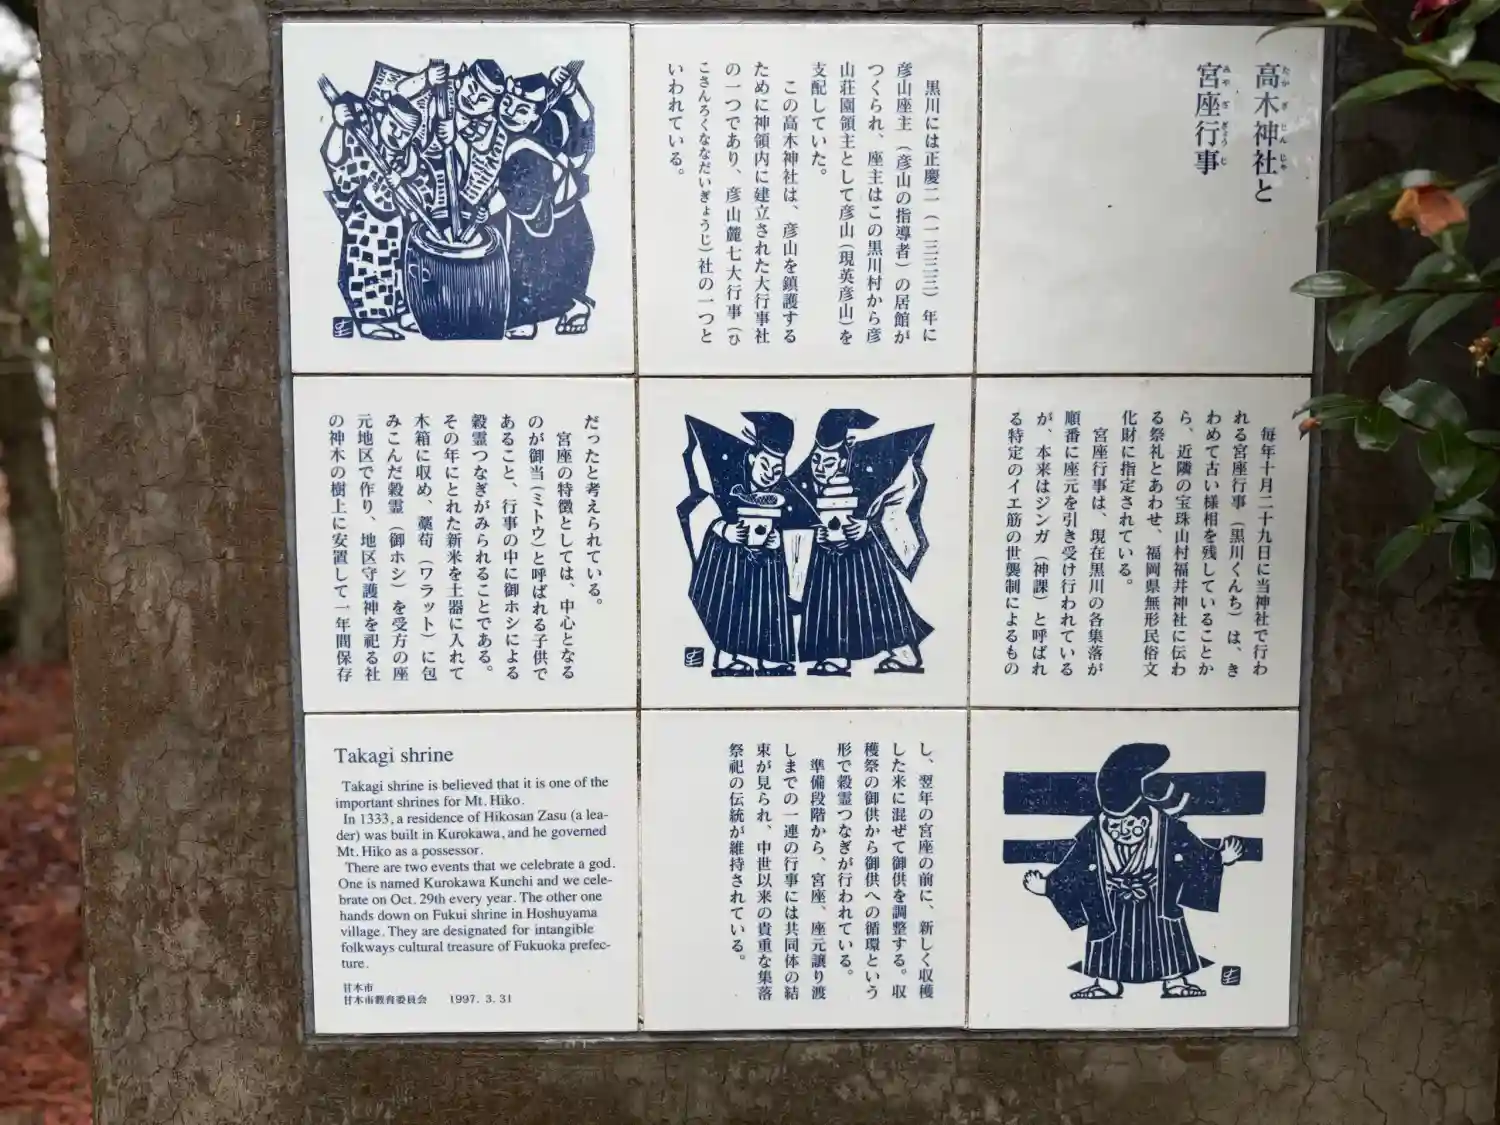 高木神社と
たかぎじんじゃ
宮座行事
みやざぎょうじ
黒川には正慶二（一三三三）年に
彦山座主（彦山の指導者）の居館が
つくられ、座主はこの黒川村から彦
山荘園領主として彦山（現英彦山）を
支配していた。
この高木神社は、彦山を鎮護する
ために神領内に建立された大行事社
の一つであり、彦山麓七大行事（ひ
こさんろくななだいぎょうじ）社の一つと
いわれている。
毎年十月二十九日に当神社で行わ
れる宮座行事（黒川くんち）は、き
わめて古い様相を残していることか
ら、近隣の宝珠山村福井神社に伝わ
る祭礼とあわせ、福岡県無形民俗文
化財に指定されている。
宮座行事は、現在黒川の各集落が
順番に座元を引き受け行われている
が、本来はジンガ（神課）と呼ばれ
る特定のイエ筋の世襲制によるもの
だったと考えられている。
宮座の特徴としては、中心となる
のが御当（ミトウ）と呼ばれる子供で
あること、行事の中に御ホシによる
穀霊つなぎがみられることである。
その年にとれた新米を土器に入れて
木箱に収め、藁苞（ワラット）に包
みこんだ穀霊（御ホシ）を受方の座
元地区で作り、地区守護神を祀る社
の神木の樹上に安置して一年間保存
し、翌年の宮座の前に、新しく収穫
した米に混ぜて御供を調整する。収
穫祭の御供から御供への循環という
形で穀霊つなぎが行われている。
準備段階から、宮座、座元譲り渡
しまでの一連の行事には共同体の結
束が見られ、中世以来の貴重な集落
祭祀の伝統が維持されている。
Takagi shrine
Takagi shrine is believed that it is one of the
important shrines for Mt. Hiko.
In 1333, a residence of Hikosan Zasu (a lea-
der) was built in Kurokawa, and he governed
Mt. Hiko as a possessor.
There are two events that we celebrate a god.
One is named Kurokawa Kunchi and we cele-
brate on Oct. 29th every year. The other one
hands down on Fukui shrine in Hoshuyama
village. They are designated for intangible
folkways cultural treasure of Fukuoka prefec-
ture.
甘木市
甘木市教育委員会 1997. 3. 31